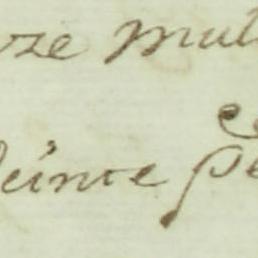 ze mul
veinte pe